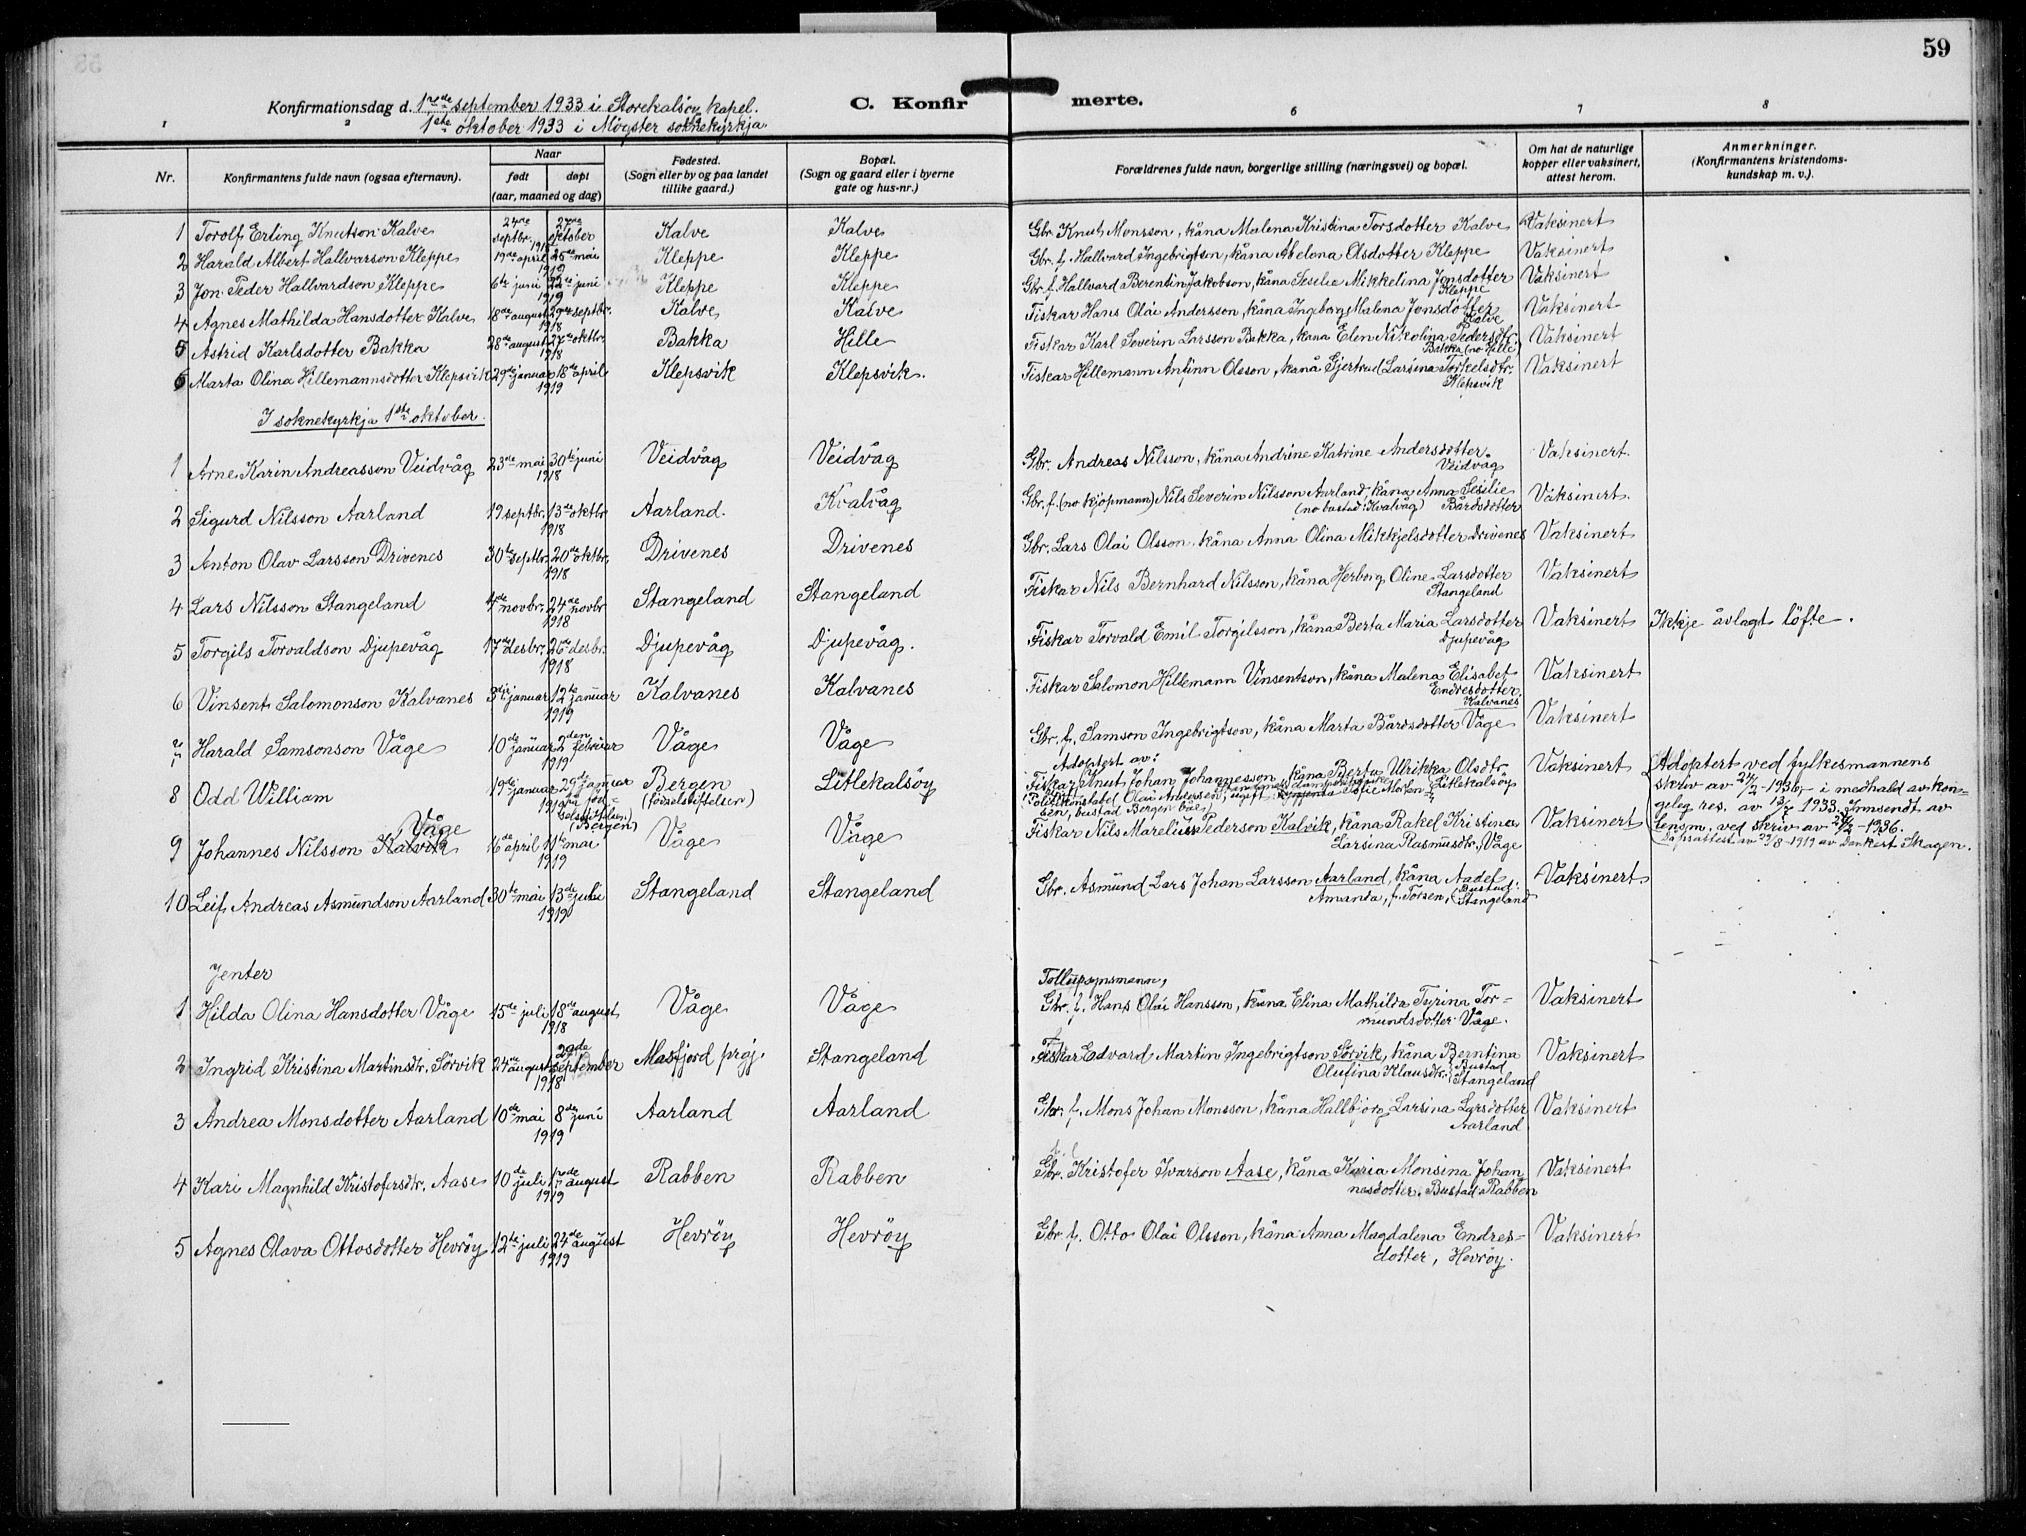 59
Konfirmationsdag d. 17de september 1933 i Storekalsöy kapel. C. Konfirmerte.
1ste oktober 1933 i Möyster soknekyrkja.
1 2 6 7 8
Nr. Konfirmantens fulde navn (ogsaa efternavn). Naar født døpt (aar, maaned og dag) Fødested. (Sogn eller by og paa landet tillike gaard.) Bopæl. (Sogn og gaard eller i byerne gate og hus-nr.) Forældrenes fulde navn, borgerlige stilling (næringsvei) og bopæl. Om hat de naturlige kopper eller vaksinert, attest herom. Anmerkninger. (Konfirmantens kristendoms-kundskap m. v.).
1 Torolf Erling Knutson Kalve 24de septbr. 27de oktober 1918 Kalve Kalve Gbr. Knut Monsson, kåna Malena Kristina Torsdotter Kalve Vaksinert
2 Harald Albert Hallvarson Kleppe 19de april 25de mai 1919 Kleppe Kleppe Gbr. f. Hallvard Ingebrigtsen, kåna Abelona Olsdotter Kleppe Vaksinert
3 Jon Peder Hallvardson Kleppe 6te juni 22de juni 1919 Kleppe Kleppe Gbr. f. Hallvard Berentin Jakobson, kåna Sesilie Mikkelina Jonsdotter Kleppe Vaksinert
4 Agnes Mathilda Hansdotter Kalve 18de august 29de septbr. 1918 Kalve Kalve Fiskar Hans Olai Andersson, kåna Ingborg Malena Jonsdotter Kalve Vaksinert
5 Astrid Karlsdotter Bakka 28de august 27de oktbr. 1918 Bakka Hille Fiskar Karl Severin Larsson Bakka, kåna Elen Nikolina Pedersdtr. Bakka (no Hille) Vaksinert
6 Marta Olina Hillemannsdotter Klepsvik 29de januar 18de april 1919 Klepsvik Klepsvik. Fiskar Hillemann Anfinn Olsson, kåna Gjertrud Larsina Torkelsdtr. Klepsvik Vaksinert
I soknekyrkja 1ste oktober.
1 Arne Karin Andreasson Veidvåg 23de mai 30te juni 1918 Veidvåg Veidvåg Gbr. Andreas Nilsson, kåna Andrine Katrine Andersdotter Veidvåg Vaksinert.
2 Sigurd Nilsson Aarland 19 septbr. 13de oktbr 1918 Aarland. Kvalvåg Gbr. f. (no kjöpmann) Nils Severin Nilsson Aarland, kåna Anna Sesilie Bårdsdotter (no bustad: Kvalvåg) Vaksinert.
3 Anton Olav Larsson Drivenes 30te septbr. 20de oktbr. 1918 Drivenes Drivenes Gbr. Lars Olai Olsson, kåna Anna Olina Mikkjelsdotter Drivenes Vaksinert
4 Lars Nilsson Stangeland 4de novbr. 24de novbr 1918 Stangeland Stangeland Fiskar Nils Bernhard Nilsson, kåna Herborg Oline Larsdotter Stangeland Vaksinert
5 Torgils Torvaldson Djupevåg 17de desbr. 26de desbr. 1918 Djupevåg Djupevåg. Fiskar Torvald Emil Torgilsson, kåna Berta Maria Larsdotter Djupevåg Vaksinert Ikkje avlagt löfte.
6 Vinsent Salomonson Kalvanes 3dje januar 12te januar 1919 Kalvanes Kalvanes Fiskar Salomon Hillemann Vinsentson, kåna Malena Elisabet Endresdotter Kalvanes Vaksinert
7 Harald Samsonson Våge 10de januar 2den februar 1919 Våge Våge Gbr. f. Samson Ingebrigtson, kåna Marta Bårdsdotter Våge Vaksinert
8 Odd William 19de januar 29de januar 1919 på födselstiftelsen (Bergen) Bergen (födselstiftelsen) Litlekalsöy Adoptert av: Fiskar Knut Johan Johannesson, kåna Berta Ulrikka Olsdtr. Litlekalsöy Politikonstabel Olai Andersen, ugift Sofie Vaksinert Adoptert ved fylkesmannens skriv av 21/2-1936 i medhald av kongeleg res. av 1933. Innsendt av lensm. ved skriv av 24/2-1936. Dåpsattest av 29/8-1919 av Dankert Skagen.
9 Johannes Nilsson Kalvik Våge 16de april 11te mai 1919 Våge Våge Fiskar Nils Marelius Pederson Kalvik, kåna Rakel Kristina Larsina Rasmusdtr., Våge Vaksinert
10 Leif Andreas Asmundson Aarland 30te mai 13de juli 1919 Stangeland Stangeland Gbr. Asmund Lars Johan Larsson Aarland, kåna Aadel Amanda, f. Torsen, (Bustad: Stangeland Vaksinert
Jenter
1 Hilda Olina Hansdotter Våge 15de juli 18de august 1918 Våge Våge Tollupsynsmann, Gbr. f. Hans Olai Hansson, kåna Elina Mathilda Tyrina Tormundsdotter Våge. Vaksinert
2 Ingrid Kristina Martinsdtr. Sörvik 24de august 29de september 1918 Masfjord prgj. Stangeland Fiskar Edvard Martin Ingebrigtson Sörvik, kåna Berntina Olufina Klausdtr. Bustad Stangeland Vaksinert
3 Andrea Monsdotter Aarland 10de mai 8de juni 1919 Aarland Aarland Gbr. f. Mons Johan Monsson, kåna Hallbjorg Larsina Larsdotter Aarland Vaksinert
4 Kari Magnhild Kristofersdtr. Aase 10de juli 17de august 1919 Rabben Rabben Gbr. Kristofer Ivarson Aase, kåna Karia Monsina Johannesdotter. Bustad Rabben Vaksinert
5 Agnes Olava Ottosdotter Hevröy 12te juli 24de august 1919 Hevröy Hevröy Gbr. f. Otto Olai Olsson, kåna Anna Magdalena Endresdotter, Hevröy. Vaksinert